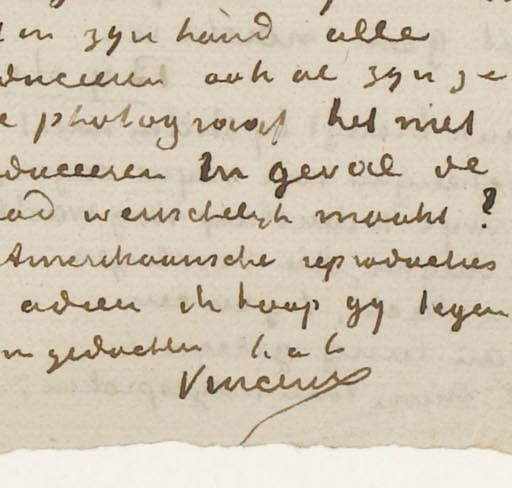 in zyn hand alle
duceeren ook al zyn ze
photograaf het met
duceeren in geval de
wenschelyk maakt?
Amerikaansche reproducties
adieu ik hoop gy tegen
gedachten t. à t.
Vincent